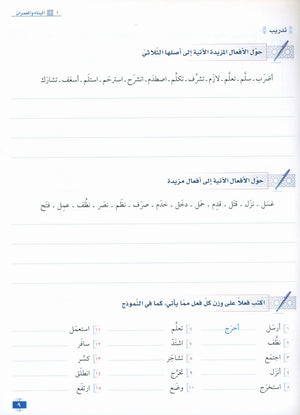 ١ البناء والعمران
تدريب
حوّل الأفعال المزيدة الآتية إلى أصلها الثلاثيّ
أضرَب . سلَّم . تعلَّم . لازَم . تشرَّف . تكلَّم . اصطدَم . انشرَح . استرحَم . استلَم . أسعَف . تشارَك
حوّل الأفعال الآتية إلى أفعال مزيدة
غسَل . نزَل . قتَل . قدِم . حمَل . دخَل . خدَم . صرَف . نظَم . نصَر . نظُف . عمِل . فتَح
اكتب فعلاً على وزن كلّ فعل ممّا يأتي، كما في النّموذج
١ أرسَل أخرَج ٦ تعلَّم ١١ استعمَل
٢ نظَّف ٧ اشتَدّ ١٢ سافَر
٣ اجتمَع ٨ تشاجَر ١٣ كسَّر
٤ أنزَل ٩ تخرَّج ١٤ انطلَق
٥ استخرَج ١٠ وضَع ١٥ ارتفَع
٩